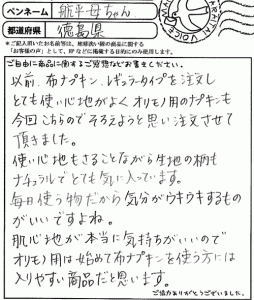 ペンネーム 新平母ちゃん
都道府県 徳島県
※ご記入頂いたお名前等は、地球洗い隊の商品に関する
「お客様の声」として、HPなどに掲載する目的にのみ使用します。
ご自由に商品に関するご感想などお書きください。
以前、布ナプキン、レギュラータイプを注文し
とても使い心地がよくオリモノ用のナプキンも
今回こちらのでそろえようと思い注文させて
頂きました。
使い心地もさることながら生地の柄も
ナチュラルでとても気に入っています。
毎日使う物だから気分がウキウキするもの
がいいですよね。
肌心地が本当に気持ちがいいので
オリモノ用は始めて布ナプキンを使う方には
入りやすい商品だと思います。
ご協力ありがとうございました。